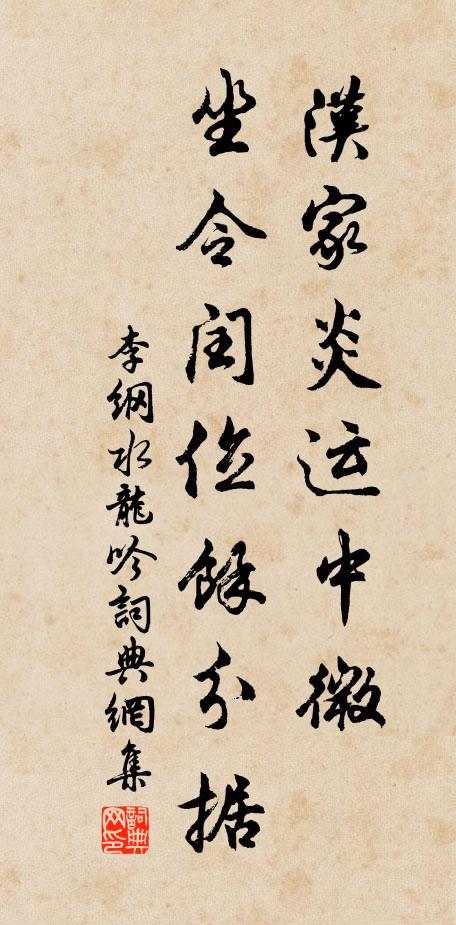 漢家炎运中微
坐令闰位餘分据
李纲水龍吟詞典網集
詞典网印